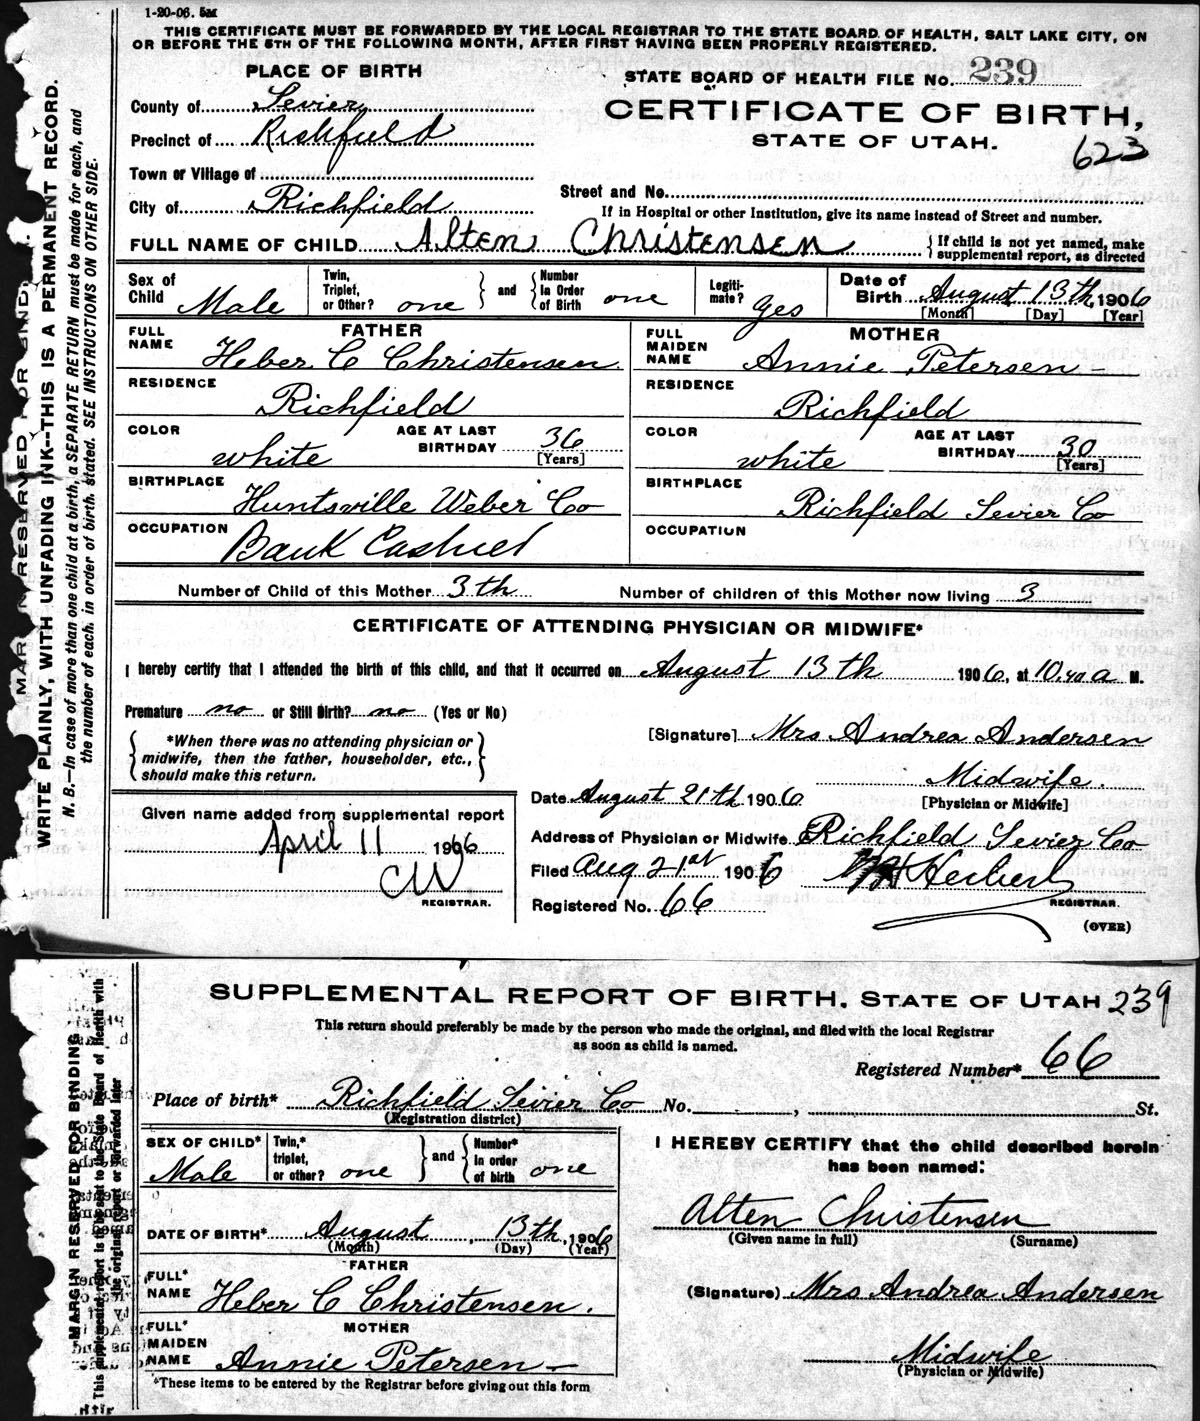 1-20-06. 5M
THIS CERTIFICATE MUST BE FORWARDED BY THE LOCAL REGISTRAR TO THE STATE BOARD OF HEALTH, SALT LAKE CITY, ON
OR BEFORE THE 5TH OF THE FOLLOWING MONTH, AFTER FIRST HAVING BEEN PROPERLY REGISTERED.
PLACE OF BIRTH
STATE BOARD OF HEALTH FILE No. 239
County of Sevier
CERTIFICATE OF BIRTH,
Precinct of Richfield
STATE OF UTAH.
623
Town or Village of
Street and No.
City of Richfield
If in Hospital or other Institution, give its name instead of Street and number.
FULL NAME OF CHILD Alten Christensen
{ If child is not yet named, make
supplemental report, as directed
Sex of Child Male
Twin, Triplet, or Other? one } and { Number In Order of Birth one
Legitimate? yes
Date of Birth August 13th 1906
[Month] [Day] [Year]
FATHER
FULL NAME Heber C Christensen
RESIDENCE
Richfield
COLOR white
AGE AT LAST BIRTHDAY 36
[Years]
BIRTHPLACE
Huntsville Weber Co
OCCUPATION Bank Cashier
MOTHER
FULL MAIDEN NAME Annie Petersen
RESIDENCE
Richfield
COLOR white
AGE AT LAST BIRTHDAY 30
[Years]
BIRTHPLACE
Richfield Sevier Co
OCCUPATION
Number of Child of this Mother 3th Number of children of this Mother now living 3
CERTIFICATE OF ATTENDING PHYSICIAN OR MIDWIFE*
I hereby certify that I attended the birth of this child, and that it occurred on August 13th 1906, at 10.40 a M.
Premature no or Still Birth? no (Yes or No)
*When there was no attending physician or
midwife, then the father, householder, etc.,
should make this return.
[Signature] Mrs Andrea Andersen
Midwife.
[Physician or Midwife]
Date August 21th 1906
Given name added from supplemental report
April 11 1906
CW
REGISTRAR.
Address of Physician or Midwife Richfield Sevier Co
Filed Aug 21st 1906
Herbert
REGISTRAR.
Registered No. 66
(OVER)
MARGIN RESERVED FOR BINDING
WRITE PLAINLY, WITH UNFADING INK--THIS IS A PERMANENT RECORD.
N. B.—In case of more than one child at a birth, a SEPARATE RETURN must be made for each, and
the number of each, in order of birth, stated. SEE INSTRUCTIONS ON OTHER SIDE.
SUPPLEMENTAL REPORT OF BIRTH. STATE OF UTAH 239
This return should preferably be made by the person who made the original, and filed with the local Registrar
as soon as child is named.
Registered Number* 66
Place of birth* Richfield Sevier Co No. , St.
(Registration district)
SEX OF CHILD* Male
Twin,* triplet, or other? one } and { Number* In order of birth one
DATE OF BIRTH* August 13th, 1906
(Month) (Day) (Year)
FATHER
FULL* NAME Heber C Christensen.
MOTHER
FULL* MAIDEN NAME Annie Petersen
*These items to be entered by the Registrar before giving out this form
I HEREBY CERTIFY that the child described herein
has been named:
Alten Christensen
(Given name in full) (Surname)
(Signature) Mrs Andrea Andersen
Midwife
(Physician or Midwife)
MARGIN RESERVED FOR BINDING
This supplemental report is to be sent to the State Board of Health with
the original report or forwarded later